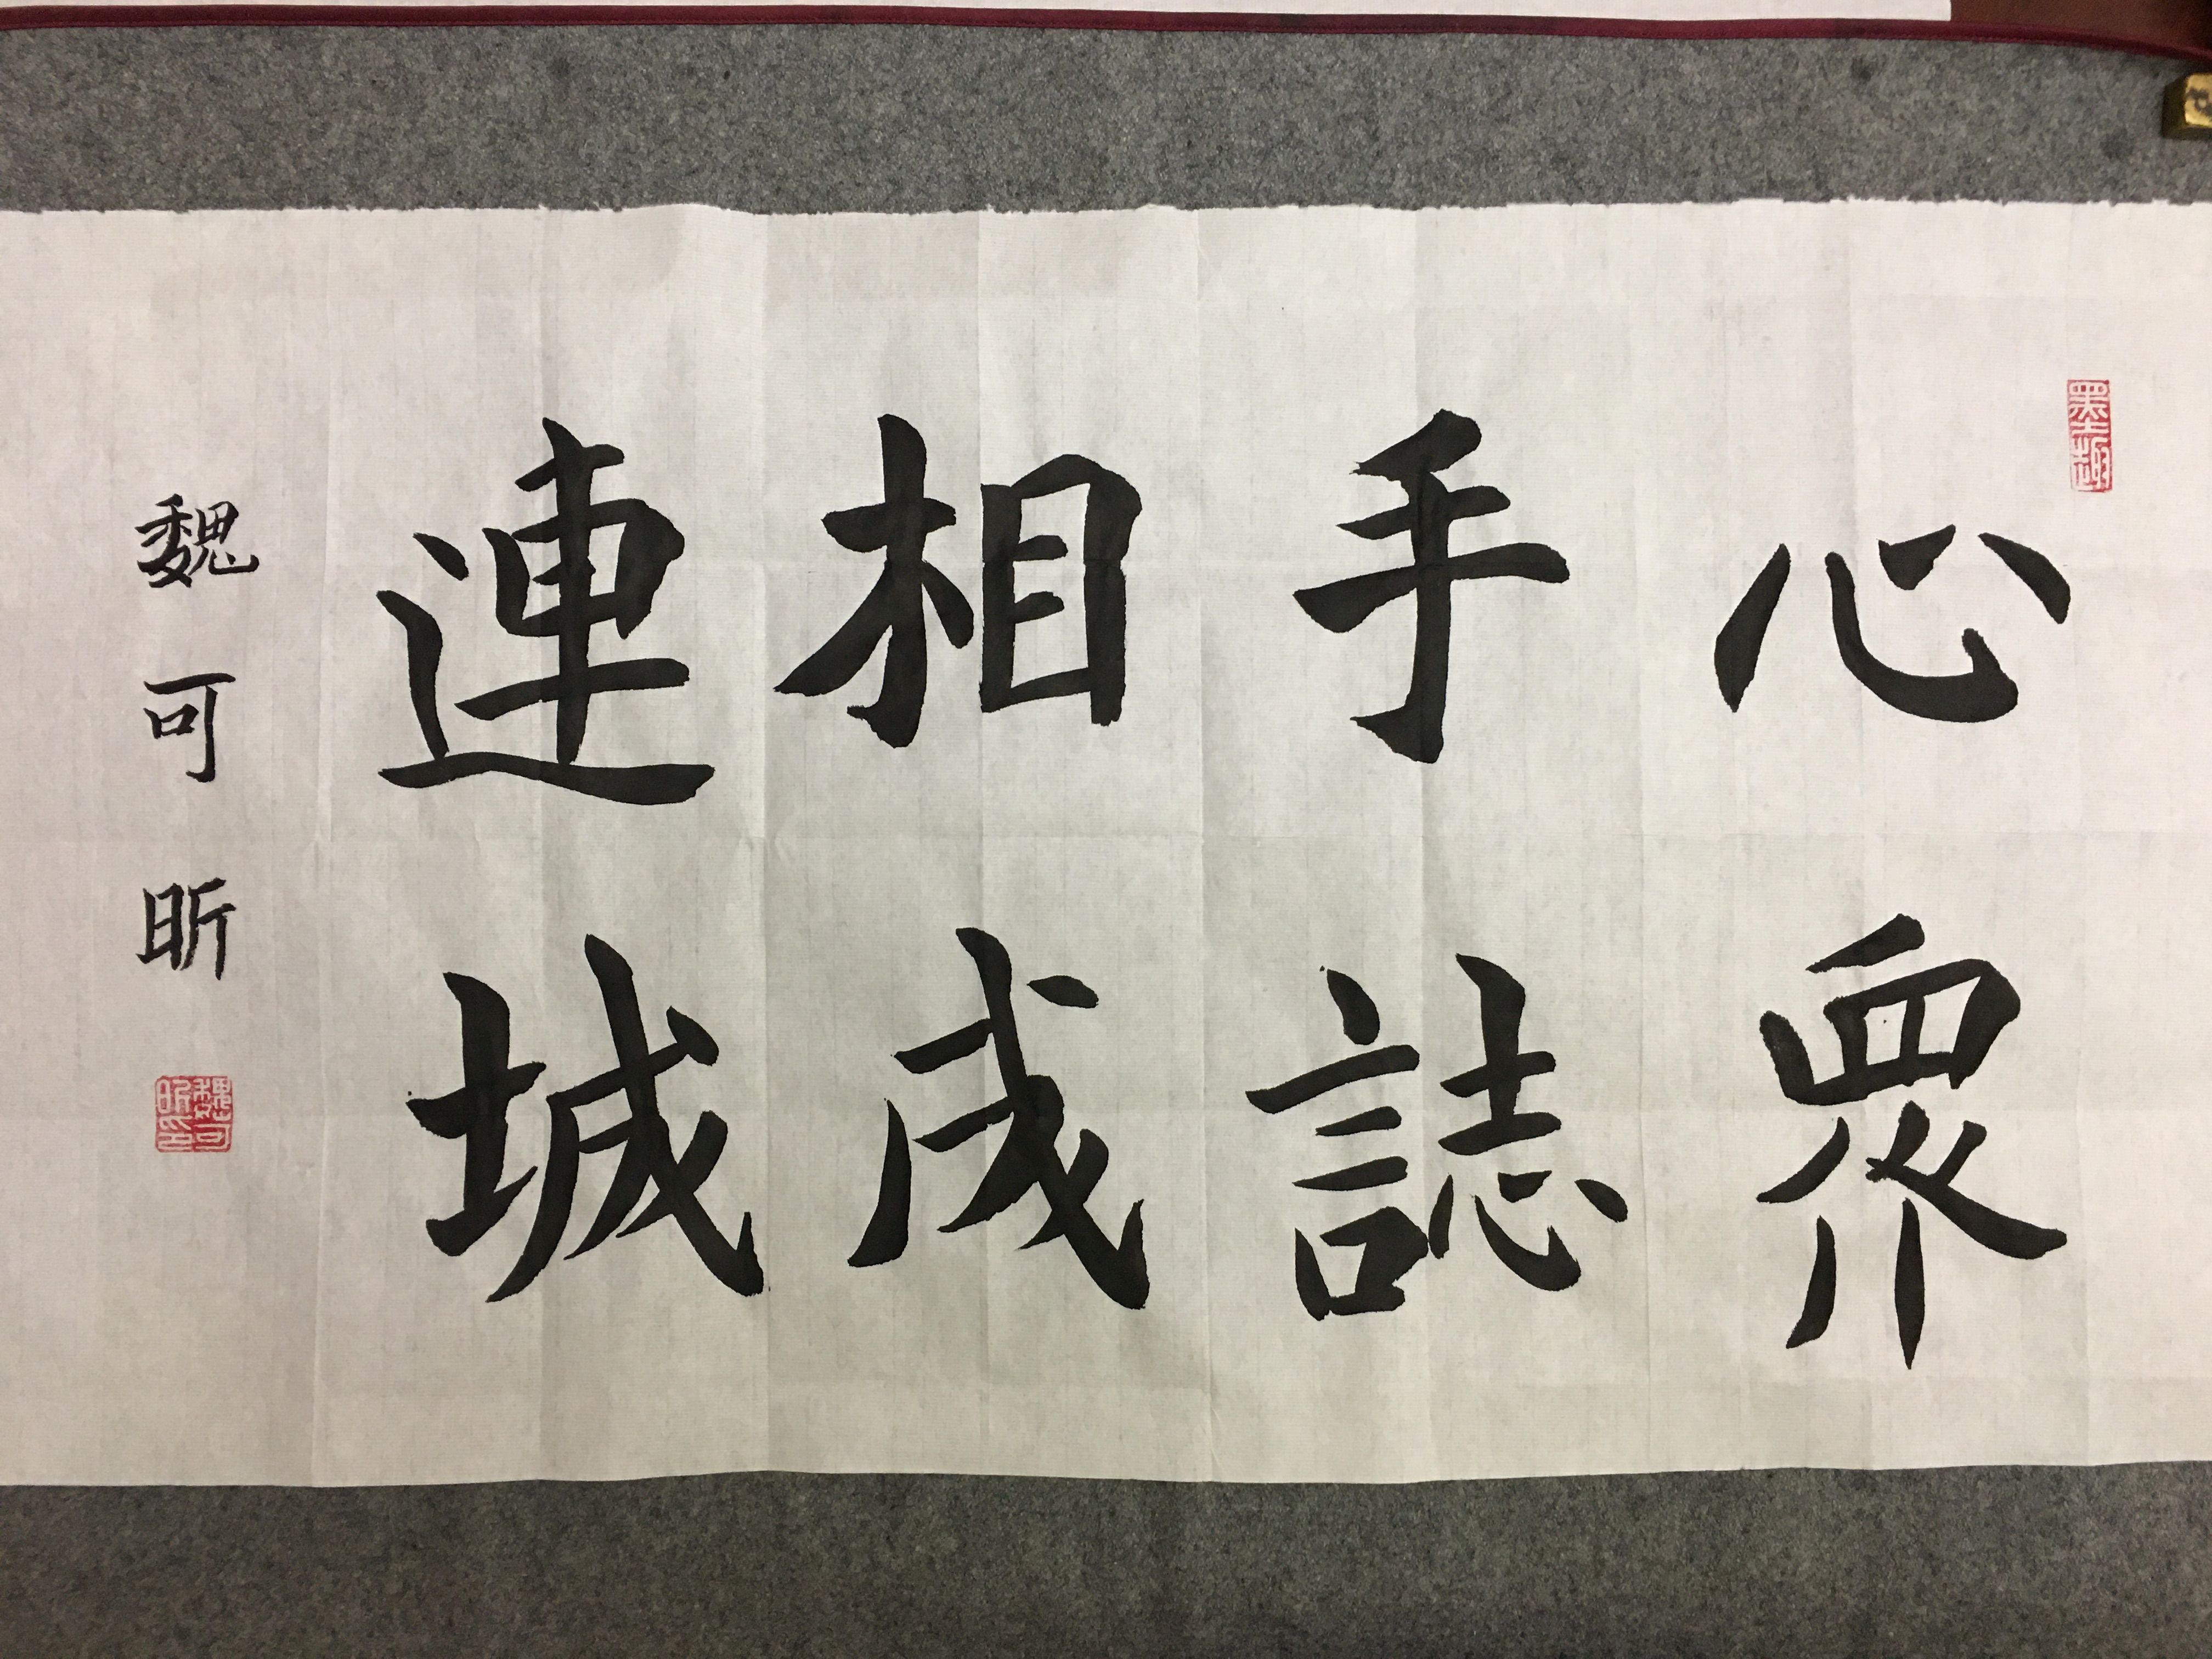 墨趣
心手相連
眾誌成城
魏可昕
魏可昕印